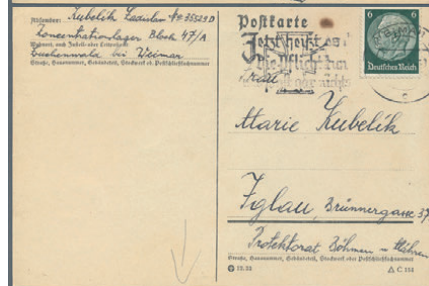 Absender: Kubelik Ladislav № 35523 D
Konzentrationslager Block 47/A
Wohnort, auch Zustell- oder Leitpostamt
Buchenwald bei Weimar
Straße, Hausnummer, Gebäudeteil, Stockwerk od. Postschließfachnummer
Postkarte
Jetzt heißt es
die Pflicht
Frau
6 6
Deutsches Reich
Marie Kubelik
Iglau, Brünnergasse 37
Protektorat Böhmen - Mähren
Straße, Hausnummer, Gebäudeteil, Stockwerk oder Postschließfachnummer